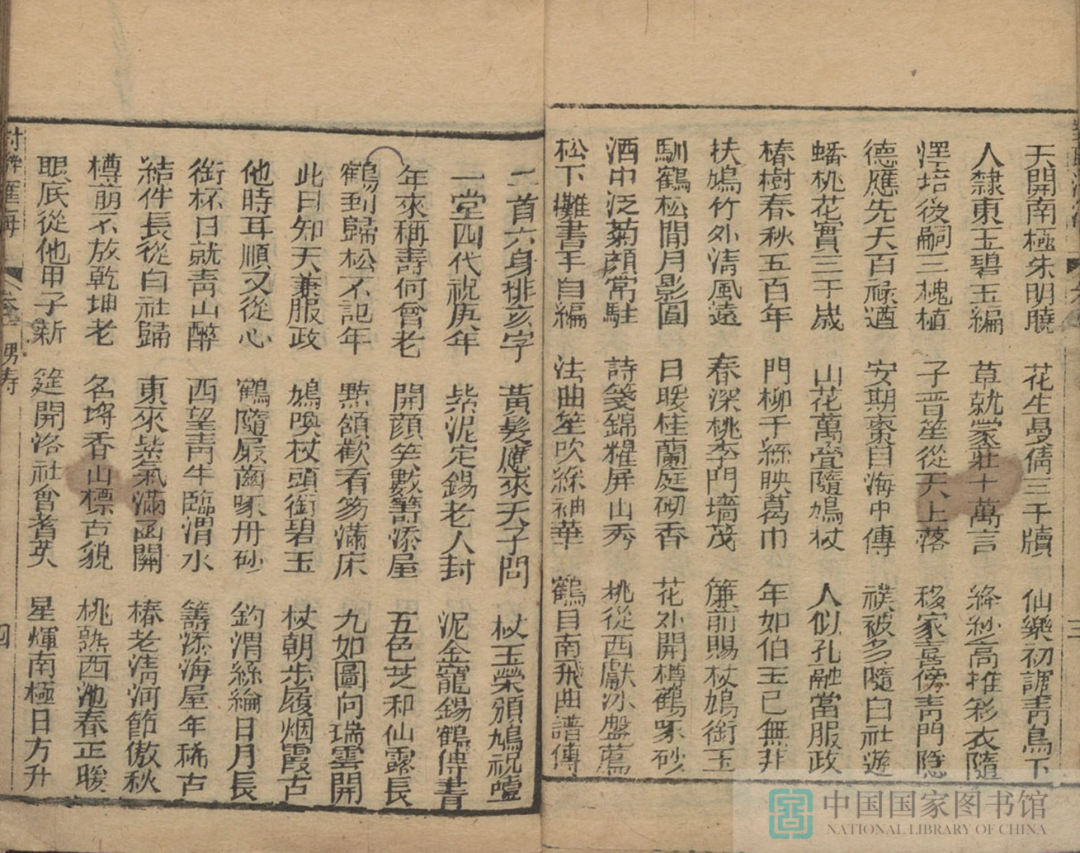 天開南極朱明曉 花生曼倩三千牘 仙樂初調青鳥下
人隸東王碧玉編 草就蒙莊十萬言 絳紗高推彩衣隨
澤培後嗣三槐植 子晋笙從天上落 移家喜傍青門隱
德應先天百祿遒 安期棗自海中傳 襆被多隨白社遊
蟠桃花實三千歲 山花萬壑隨鳩杖 人似孔融當服政
椿樹春秋五百年 門柳千絲映葛巾 年如伯玉已無非
扶鳩竹外清風遠 春深桃李門墻茂 簾前賜杖鳩銜玉
馴鶴松間月影圓 日暖桂蘭庭砌香 花外開樽鶴啄砂
酒中泛菊顔常駐 詩箋錦耀屏山秀 桃從西獻冰盤薦
松下攤書手自編 法曲笙吹綵袖華 鶴自南飛曲譜傳
二首六身排亥字 黃髮應來天子問 杖玉榮頒鳩祝噎
一堂四代祝庚年 紫泥定錫老人封 泥金寵錫鶴傳書
年來稱壽何曾老 開顔笑數籌添屋 五色芝和仙露長
鶴到歸松不記年 點頷歡看笏滿床 九如圖向瑞雲開
此日知天兼服政 鳩喚杖頭銜碧玉 杖朝步履烟霞古
他時耳順又從心 鶴隨巖齒啄丹砂 釣渭絲綸日月長
銜杯日就靑山醉 西望靑牛臨渭水 籌添海屋年稀古
結件長從白社歸 東來紫氣滿函關 椿老淸河節傲秋
樽前不放乾坤老 名塆香山標古貌 桃熟西池春正暖
眼底從他甲子新 筵開洛社會耆英 星輝南極日方升
四
中国国家图书馆
NATIONAL LIBRARY OF CHINA